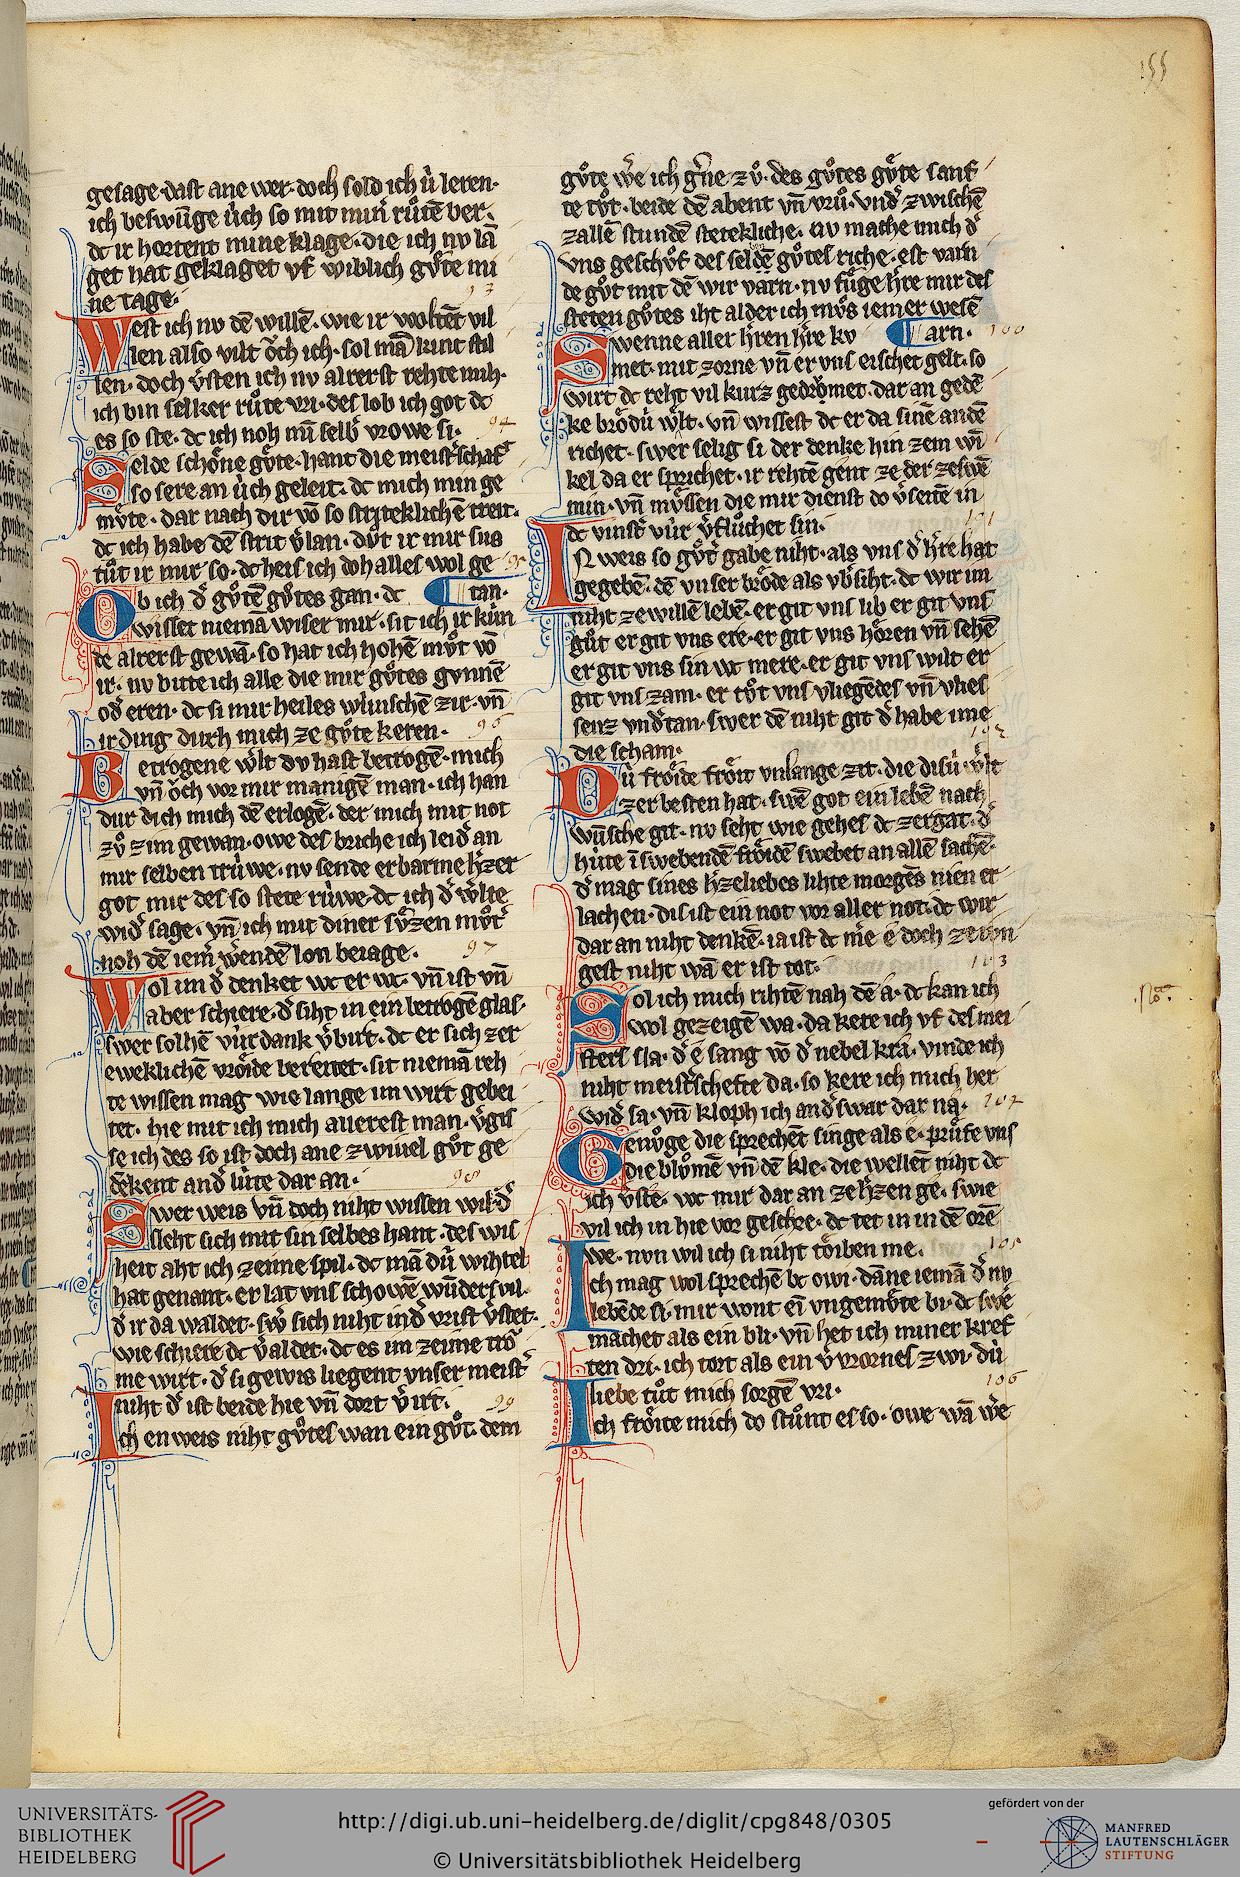 155
gesage· dast ane wer· doch sold ich ŭ leren·
ich betwūge ŭch so mit minˀ růtē ber·
dc ir hortent mine klage· die ich nv lā
get hat geklaget vf wiblich gvͤte mi
ne tage·
93
West ich nv dē willē· wie ir woltēt vil
len also vilt ȯch ich· sol mā kint stil
len· doch vˀsten ich nv alrerst rehte mih·
ich bin selker růte vri· des lob ich got dc
es so ste· dc ich noh mī selbˀ vrowe si·
94
Selde schȯne gvͤte· hant die meistˀschaft
so sere an ŭch geleit· dc mich min ge
mvͤte· dar nach dir vō so striteklichē treit·
dc ich habe dē strit vˀlan· dvͦt ir mir sus
tůt ir mir so· dc heis ich doh alles wol ge
95
tan·
Ob ich dˀ gvͦtē gvͦtes gan· dc
wisset niemā wiser mir· sit ich ir kūn
de alrerst gewā· so hat ich hohē mvͦt vō
ir· nv bitte ich alle die mir gvͦtes gvnnē
odˀ eren· dc si mir heiles wūschē zir· vn̄
ir ding durch mich ze gvͦte keren·
96
Betrogene wˀlt dv hast betrogē· mich
vn̄ ȯch vor mir manigē man· ich han
dur dich mich dē erlogē· der mich mit not
zvͦ zim gewan· owe des briche ich leidˀ an
mir selben trŭwe· nv sende erbarmehˀzer
got mir des so stete rŭwe· dc ich dˀ wˀlte
widˀ sage· vn̄ ich mit diner svͤzen mvͦtˀ
noh dē iemˀ wˀendē lon beiage·
97
Wol im dˀ denket wc er wc· vn̄ ist vn̄
aber schiere· dˀ siht in ein betrogē glas·
swer solhē vŭrdank vˀbirt· dc er sich zer
eweklichē vrȯide bereitet· sit niemā reh
te wissen mag wie lange im wirt gebei
tet· hie mit ich mich allerest man· vˀgis
se ich des so ist doch ane zwiuel gvͦt ge
dēkent andˀ lŭte dar an·
98
Swer weis vn̄ doch niht wissen wil· dˀ
sleht sich mit sin selbes hant· des wis
heit aht ich zeime spil· dc mā dŭ wihtel
hat genant· er lat vns schowē wūders vil·
dˀ ir da waldet· swˀ sich niht indˀ vrist vˀstet·
wie schiere dc vˀaldet· dc es im zeime trȯ
me wirt· dˀ si gewis liegent vnser meistˀ
niht dˀ ist beide hie vn̄ dort vˀirt·
99
Ich en weis niht gvͦtes wan ein gvͦt· dem
gvͦte wˀe ich gˀne zvͦ· des gvͦtes gvͤte sanf
te tvͦt· beide dē abent vn̄ vrů· vndˀ zwischē
zallē stundē stetekliche· nv mache mich dˀ
vns geschvͦf des seldē gvͦtes riche· est varn
de gvͦt mit dē wir varn· nv fŭge hˀre mir des
steten gvͦtes iht alder ich mvͦs iemer wesē
arn· 100
Swenne aller hˀren hˀre kv
met· mit zorne vn̄ er vns eischet gelt· so
wirt dc reht vil kurz gedrvͦmet· dar an gedē
ke brȯdŭ wˀlt· vn̄ wissest dc er da sinē andē
richet· swer selig si der denke hin zem wī
kel da er sprichet· ir rehtē gent ze der zeswē
min· vn̄ mvͤssen die mir dienst do vˀseitē in
dc vinstˀ vŭr vˀflůchet sin·
101
IN weis so gvͦtˀ gabe niht· als vns dˀ hˀre hat
gegebē· dē vnser brȯde als vbˀsiht· dc wir im
niht ze willē lebē· er git vns lib er git vns
gůt er git vns ere· er git vns hȯren vn̄ sehē
er git vns sin wc mere· er git vns wilt er
git vns zam· er tvͦt vns vliegēdes vn̄ vlies
senz vndˀtan· swer dē niht git dˀ habe ime
102
die scham·
Dŭ frȯide frȯit vnlange zit· die disŭ wˀlt
zer besten hat· swē got ein lebē nach
wūsche git· nv seht wie gehes dc zergat· dˀ
hŭte ī swebendē frȯidē swebet an allē sachē·
dˀ mag sines hˀzeliebes lihte morgēs nien er
lachen· dis ist ein not vor aller not· dc wir
dar an niht denkē· ia ist dc mˀe e doch ze ivn
gest niht wā er ist tot·
103
Sol ich mich rihtē nah dē a· dc kan ich
wol gezeigē wa· da kere ich vf des mei
sters sla· dˀ e sang vō dˀ nebel kra· vinde ich
niht meistˀschefte da· so kere ich mich her
widˀ sa· vn̄ kloph ich andˀswar dar na·
104
Genvͦge die sprechēt singe als e· prŭfe vns
die blvͦmē vn̄ dē kle· die wellēt niht dc
ich vˀste· wc mir dar an ze hˀzen ge· swie
vil ich in hie vor geschre· dc tet in in dē orē
we· nvn wil ich si niht tȯiben me·
105
Ich mag wol sprechē bc owi· dāne iemā dˀ nv
lebēde si· mir wont eī vngemvͤte bi· dc swe
machet als ein bli· vn̄ het ich miner kref
ten dri· ich tort als ein vˀvrornes zwi· dŭ
liebe tůt mich sorgē vri·
106
Ich frȯite mich do stůnt es so· owe wā wˀe
UNIVERSITÄTS-
BIBLIOTHEK
HEIDELBERG
http://digi.ub.uni-heidelberg.de/diglit/cpg848/0305
© Universitätsbibliothek Heidelberg
gefördert von der
MANFRED
LAUTENSCHLÄGER
STIFTUNG